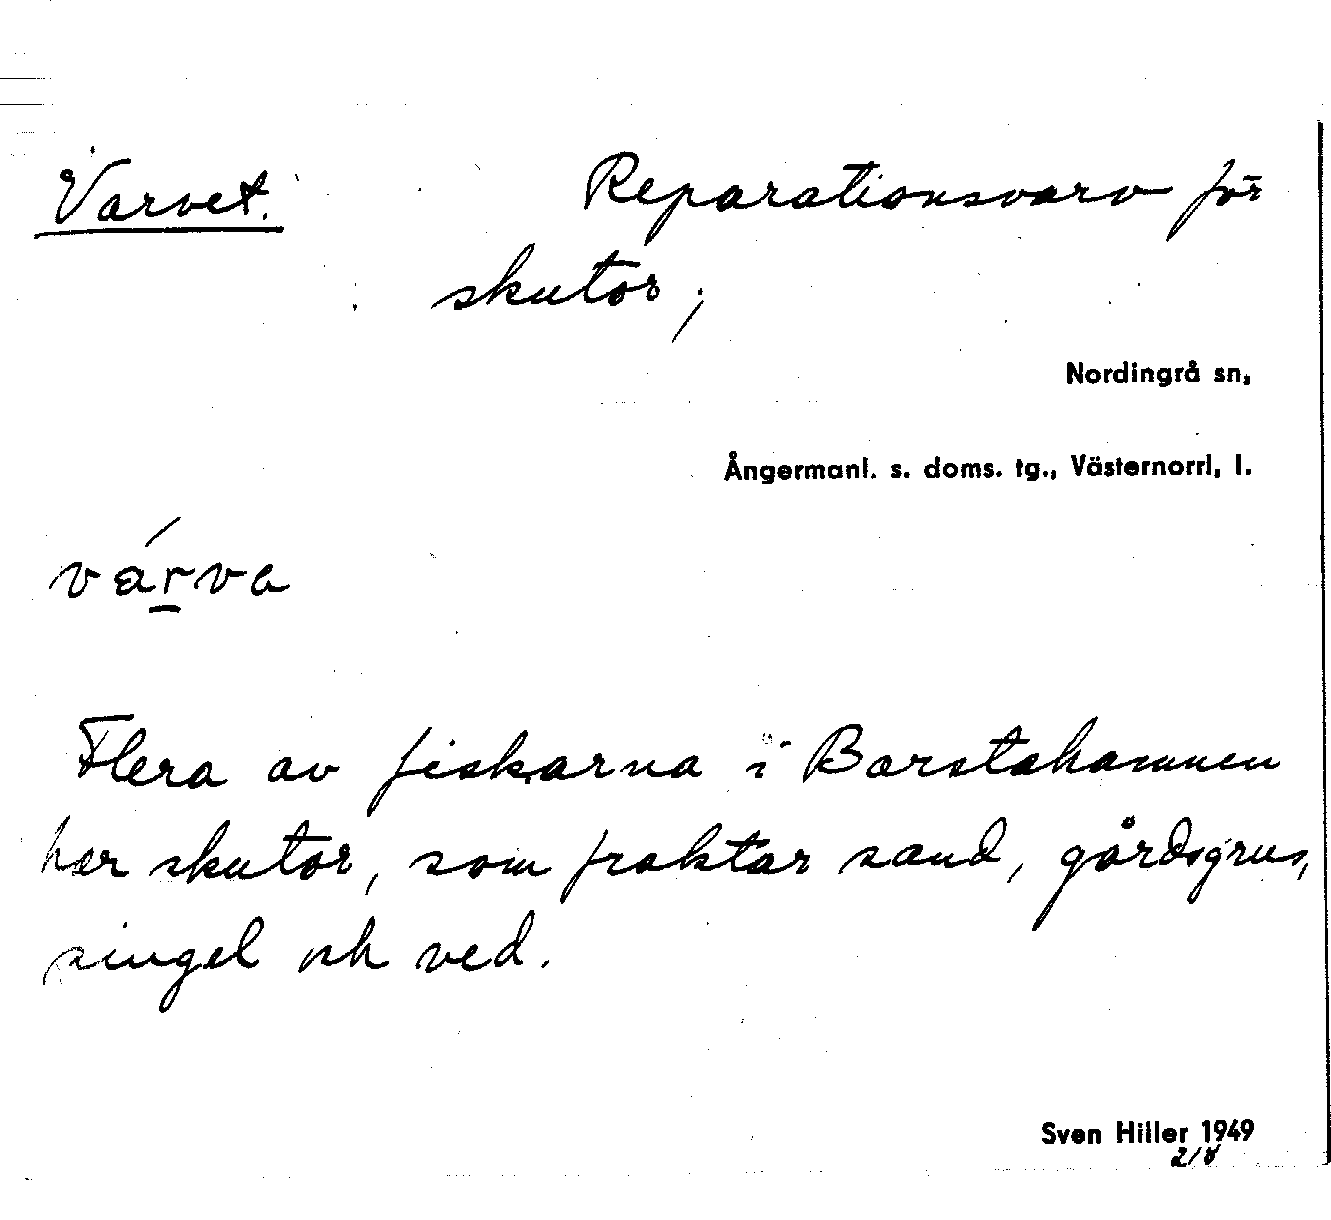 Varvet. Reparationsvarv för
skutor;
Nordingrå sn,
Ångermanl. s. doms. tg., Västernorrl, l.
várva
Flera av fiskarna i Barstahamnen
har skutor, som fraktar sand, gårdsgrus,
singel och ved.
Sven Hiller 1949
2/8